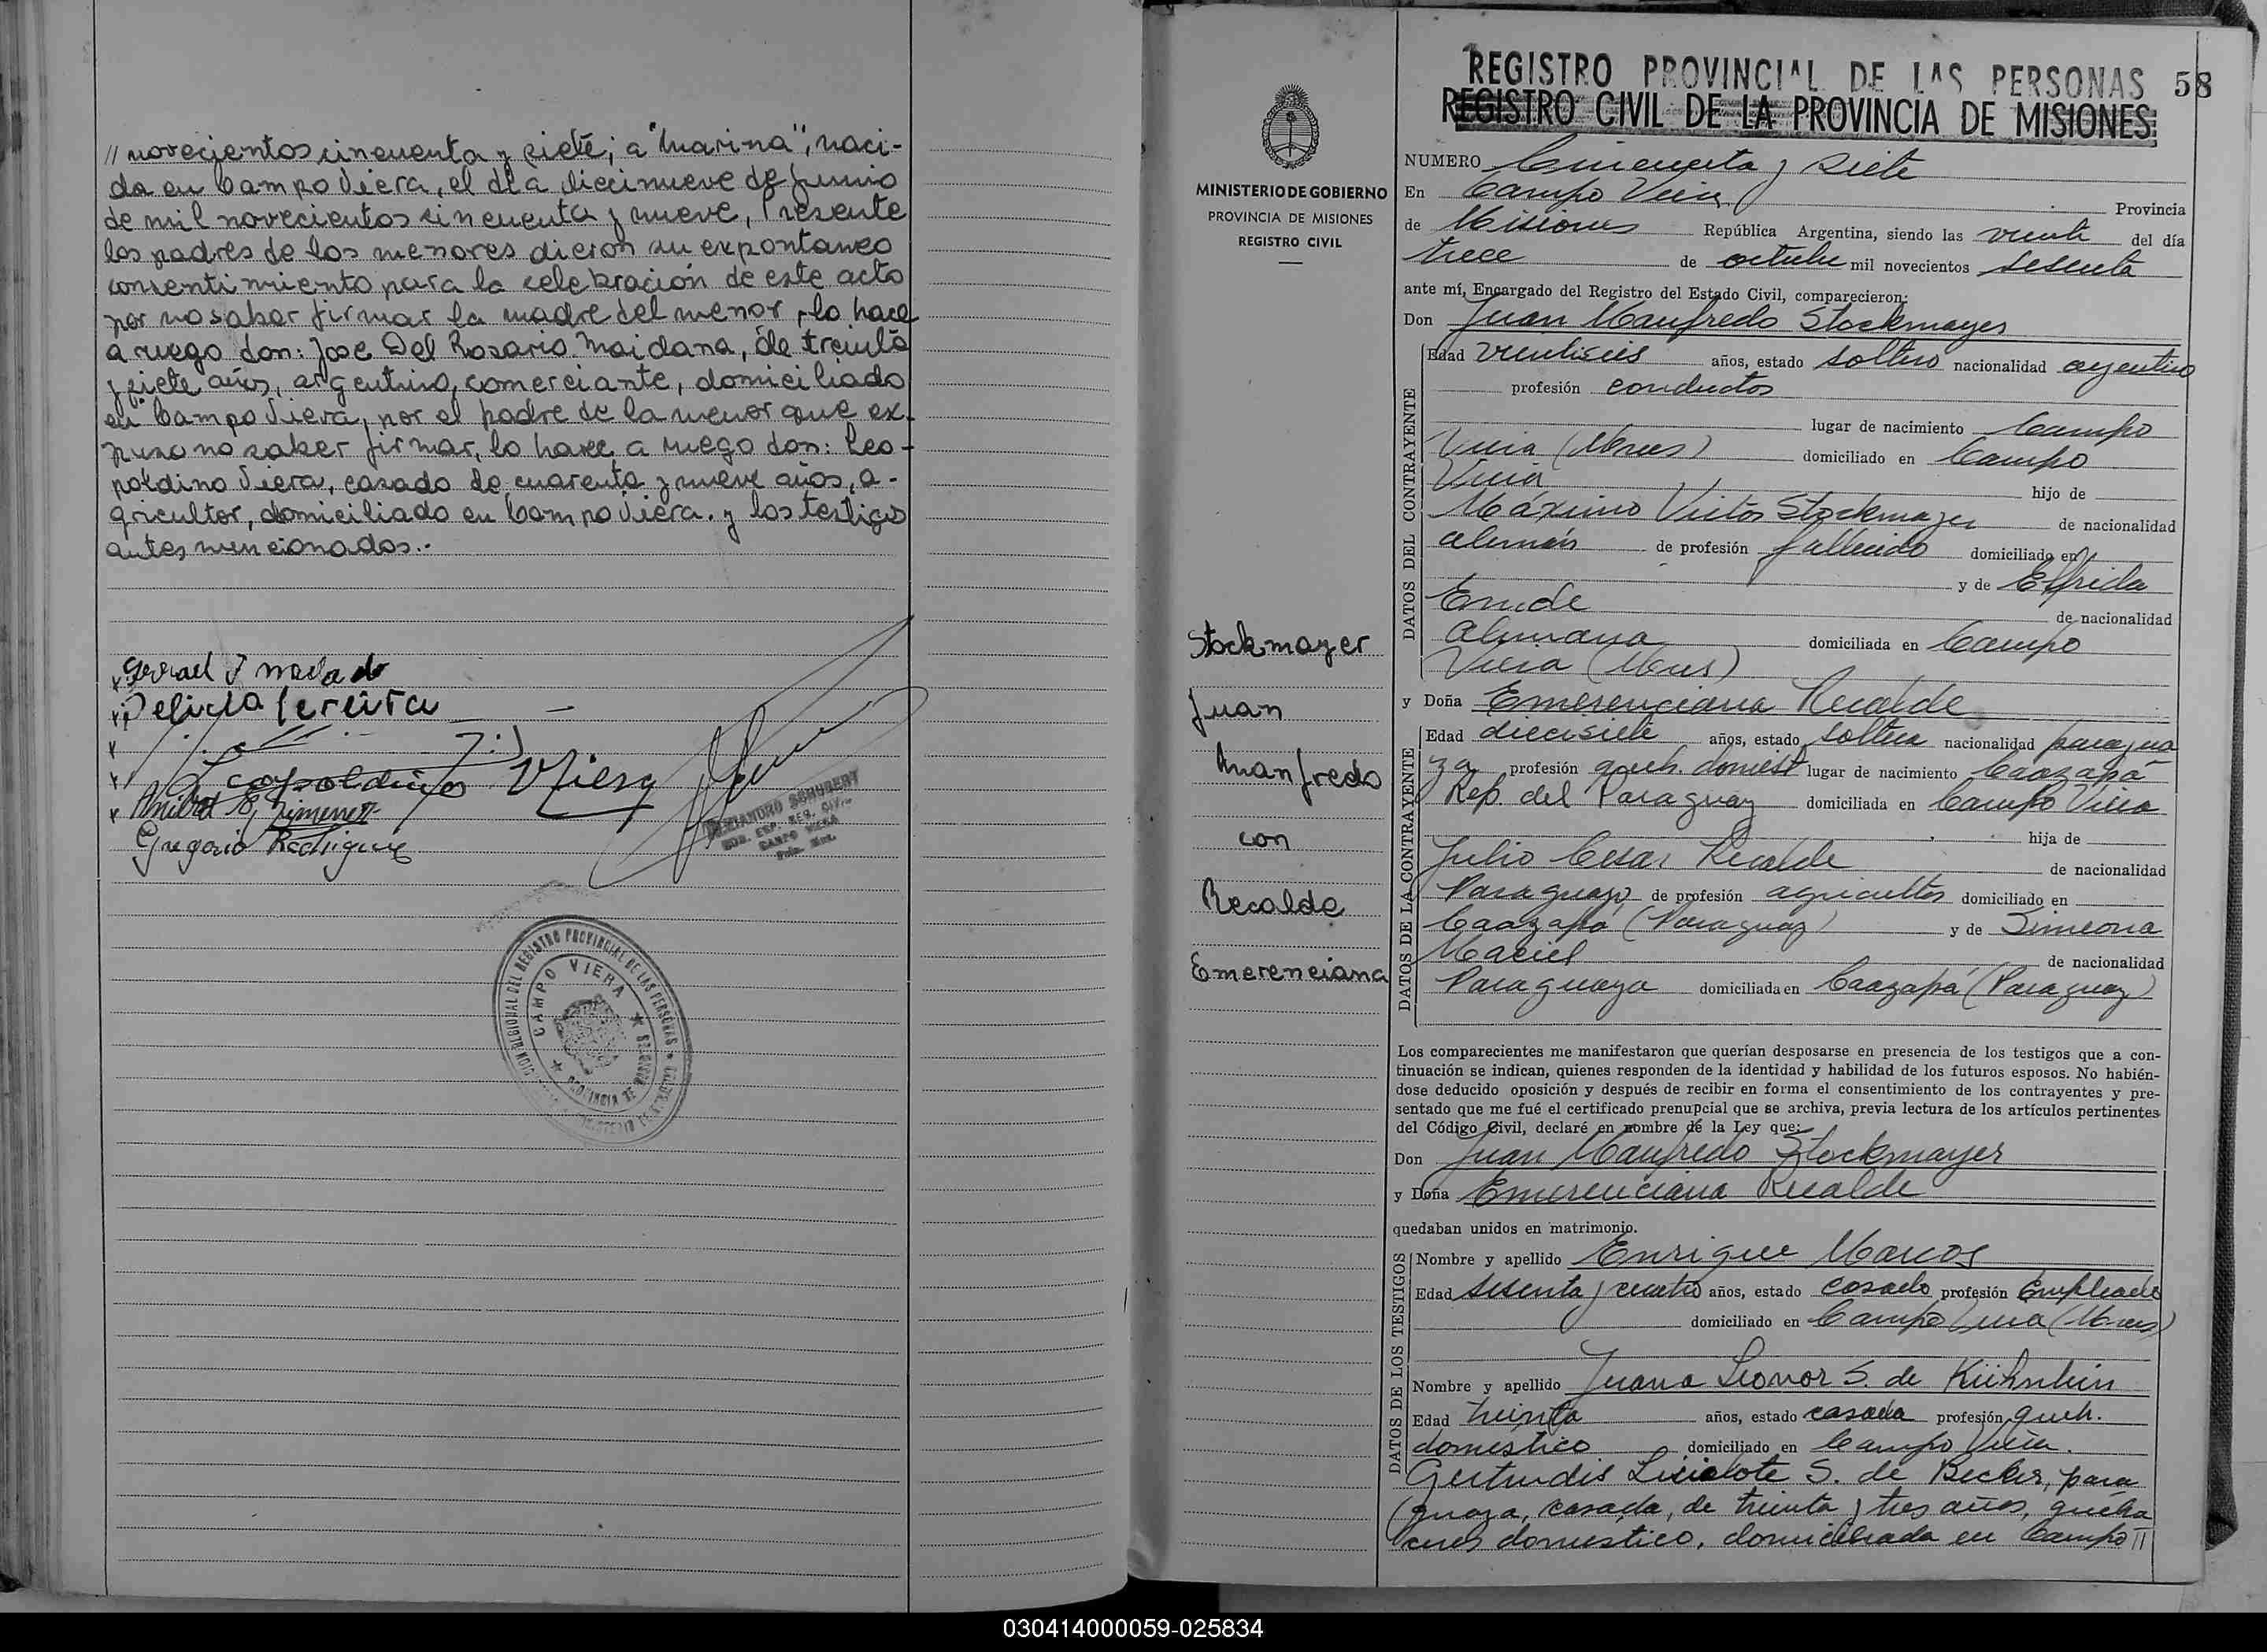 // novecientos cincuenta y siete; a "Marina", naci-
da en Campo Viera, el día diecinueve de Junio
de mil novecientos cincuenta y nueve, Presente
los padres de los menores dieron su expontaneo
consentimiento para la celebración de este acto
por no saber firmar la madre del menor, lo hace
a ruego don: Jose Del Rosario Maidana, de treinta
y siete años, argentino, comerciante, domiciliado
en Campo Viera, por el padre de la menor que ex-
puso no saber firmar, lo hace a ruego don: Leo-
poldino Viera, casado de cuarenta y nueve años, a-
gricultor, domiciliado en Campo Viera. y los testigos
antes mencionados..-
Leopoldino Viera
Anibal E. Gimenez
Gregorio Rodriguez
ALEJANDRO SCHUBERT
CAMPO VIERA
REGISTRO PROVINCIAL DE LAS PERSONAS
CAMPO VIERA
PROVINCIA DE MISIONES
REGISTRO PROVINCIAL DE LAS PERSONAS 58
REGISTRO CIVIL DE LA PROVINCIA DE MISIONES
MINISTERIO DE GOBIERNO
PROVINCIA DE MISIONES
REGISTRO CIVIL
Stockmayer
Juan
Manfredo
con
Recalde
Emerenciana
NUMERO Cincuenta y siete
En Campo Viera Provincia
de Misiones República Argentina, siendo las veinte del día
trece de octubre mil novecientos sesenta
ante mí, Encargado del Registro del Estado Civil, comparecieron:
Don Juan Manfredo Stockmayer
DATOS DEL CONTRAYENTE
Edad veintiseis años, estado soltero nacionalidad argentino
profesión conductor
lugar de nacimiento Campo
Viera (Mnes) domiciliado en Campo
Viera hijo de
Máximo Victor Stockmayer de nacionalidad
alemán de profesión fallecido domiciliado en
y de Elfrida
Emde de nacionalidad
Alemana domiciliada en Campo
Viera (Mnes)
y Doña Emerenciana Recalde
DATOS DE LA CONTRAYENTE
Edad diecisiete años, estado soltera nacionalidad paragua
ya profesión queh. domést lugar de nacimiento Caazapá
Rep. del Paraguay domiciliada en Campo Viera
hija de
Julio Cesar Recalde de nacionalidad
Paraguayo de profesión agricultor domiciliado en
Caazapá (Paraguay) y de Simeona
Maciel de nacionalidad
Paraguaya domiciliada en Caazapá (Paraguay)
Los comparecientes me manifestaron que querían desposarse en presencia de los testigos que a con-
tinuación se indican, quienes responden de la identidad y habilidad de los futuros esposos. No habién-
dose deducido oposición y después de recibir en forma el consentimiento de los contrayentes y pre-
sentado que me fué el certificado prenupcial que se archiva, previa lectura de los artículos pertinentes
del Código Civil, declaré en nombre de la Ley que:
Don Juan Manfredo Stockmayer
y Doña Emerenciana Recalde
quedaban unidos en matrimonio.
DATOS DE LOS TESTIGOS
Nombre y apellido Enrique Marcos
Edad sesenta y cuatro años, estado casado profesión Empleado
domiciliado en Campo Viera (Mnes)
Nombre y apellido Juana Leonor S. de Kühnlein
Edad treinta años, estado casada profesión queh.
doméstico domiciliado en Campo Viera.
Gertrudis Liselote S. de Becker, para
guaya, casada, de treinta y tres años, queha
ceres doméstico, domiciliada en Campo //
030414000059-025834